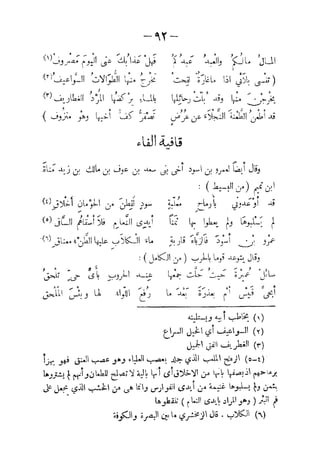 — ٩٢ —
المال مالكم والعبد عبدكم فهل عذابك عنى اليوم مصروف (١)
(تنسى بلائى اذا ماغارة لقحت تخرج منها الطوالات السواعيف (٢)
يخرجن منها وقد بلت رحائلها بالماء يركضها المرد الغطاريف (٣)
قد أطعن الطعنة النجلاء عن عرض تصفر كف أخيها وهو منزوف)
قافية الفاء
وقال أيضا لعمرو بن اسود أخى بنى سعد بن عوف بن مالك بن زيد مناة
ابن تميم (من البسيط) :
قد أوعدونى بأرماح معلبة سود لقطن من الحومان أخلاق (٤)
لم يسلبوها ولم يعطوا بها ثمنا أيدى النعام فلا أسقاهم الساقى (٥)
عمرو بن أسود قاربة ماء الكلاب عليها الظبى معناق (٦)
وقال يتوعد قوما بالحرب (من الكامل) :
سائل عميرة حيث حلت جمعها عند الحروب بأى حى تلحق
أبحى قيس أم بعذرة بعد ما رفع اللواء لها وبئس الملحق
(١) يخاطب أبيه ويستلينه
(٢) السواعيف أي الخيل السراع
(٣) الغطريف الفتى الجميل
(٤–٥) الرمح الملب الذي جلد بعصب العلباء وهو عصب العنق فهو يهزأ
برماحهم اذ يصفها بانها من الاخلاق أى أنها بالية لا تصلح للطعان وأنهم لم يشتروها
بثمن ولم يسلبوها غنيمة من أيدى الفوارس وانما هى من الخشب الذي يجعل على
فم البئر (وهو المراد بايدى النعام) تلقطوها
(٦) الكلاب . قال الزمخشرى ما بين البصرة والكوفة